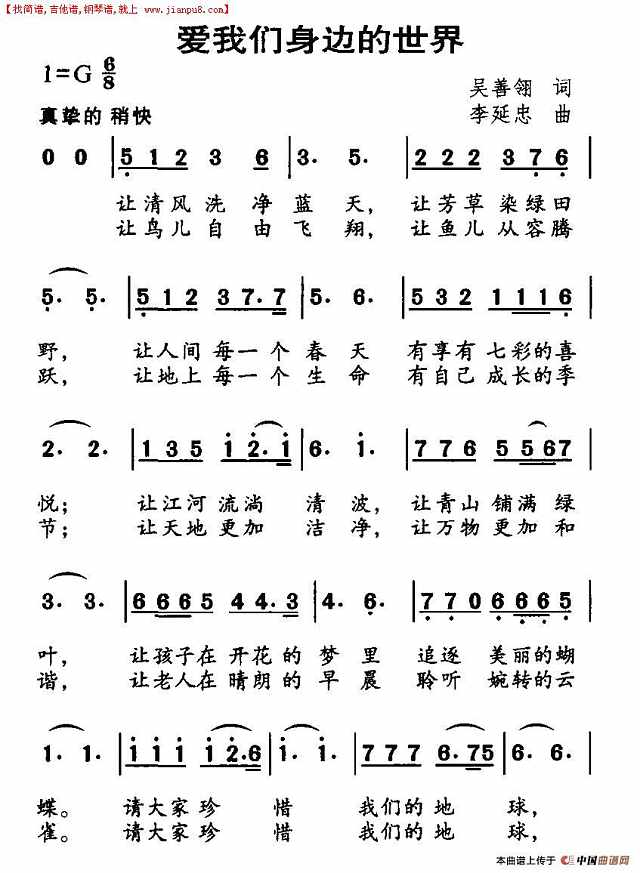 【找简谱,吉他谱,钢琴谱,就上 www.jianpu8.com】
爱我们身边的世界
1=G 6/8
吴善翎 词
真挚的 稍快
李延忠 曲
0 0 | 5 1 2 3 6 | 3. 5. | 2 2 2 3 7 6 |
让清风洗净蓝天, 让芳草染绿田
让鸟儿自由飞翔, 让鱼儿从容腾
5. 5. | 5 1 2 3 7. 7 | 5. 6. | 5 3 2 1 1 1 6 |
野, 让人间每一个春天 有享有七彩的喜
跃, 让地上每一个生命 有自己成长的季
2. 2. | 1 3 5 1 2. 1 | 6. 1. | 7 7 6 5 5 6 7 |
悦; 让江河流淌清波, 让青山铺满绿
节; 让天地更加洁净, 让万物更加和
3. 3. | 6 6 6 5 4 4. 3 | 4. 6. | 7 7 0 6 6 6 5 |
叶, 让孩子在开花的梦里 追逐 美丽的蝴
谐, 让老人在晴朗的早晨 聆听 婉转的云
1. 1. | 1 1 1 1 2. 6 | 1. 1. | 7 7 7 6. 7 5 | 6. 6. |
蝶。 请大家珍惜 我们的地球,
雀。 请大家珍惜 我们的地球,
本曲谱上传于 中国曲谱网